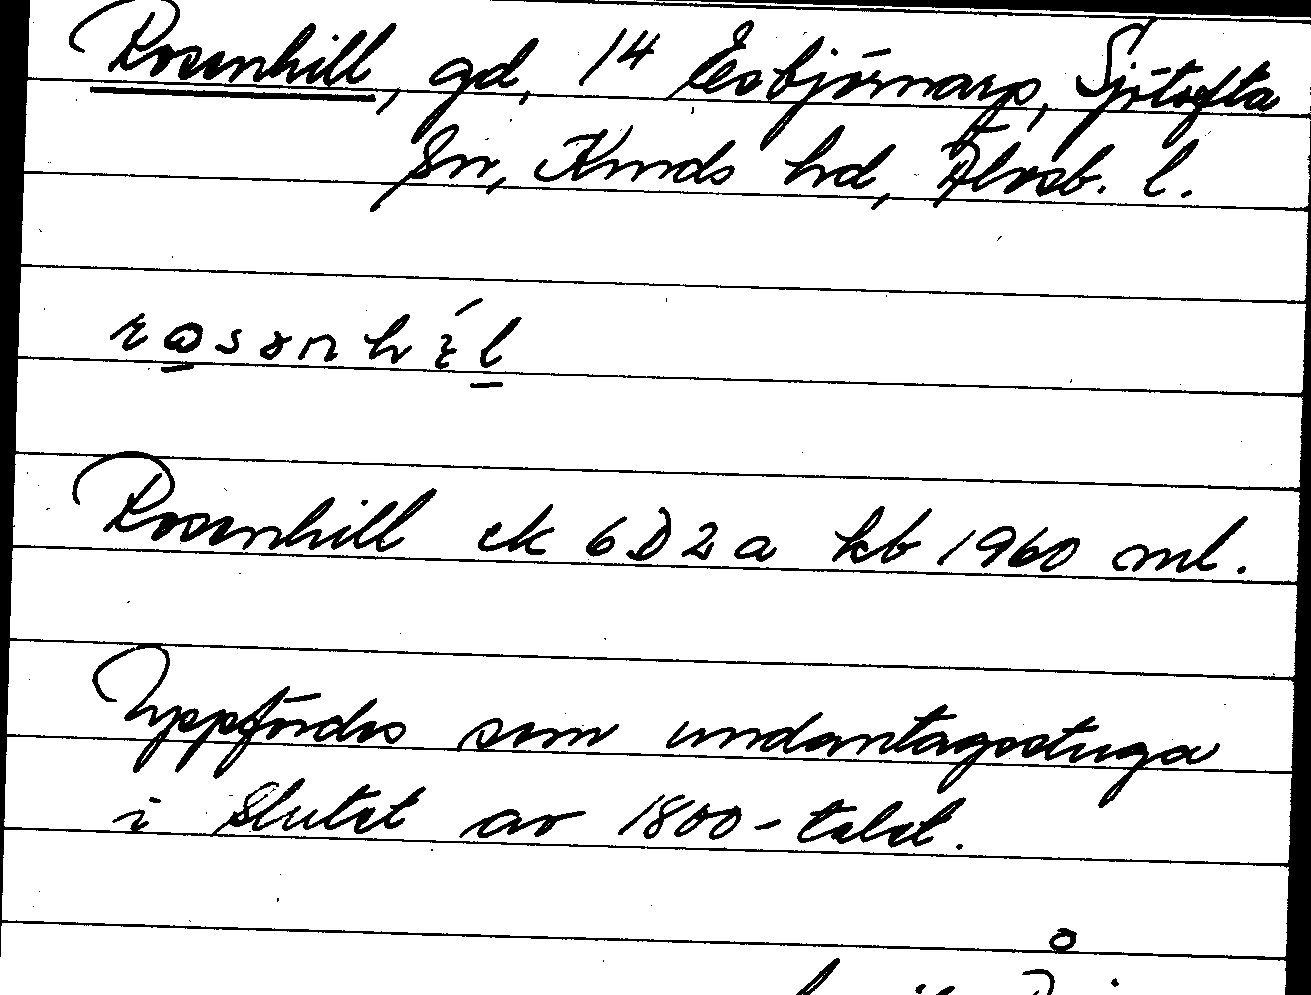 Rosenhill, gd, 14 Esbjörnarp, Sjötofta
sn, Kinds hd, Älvsb. l.
Rosenhill ek 6D2a kb 1960 ml.
Uppfördes som undantagsstuga
i slutet av 1800-talet.